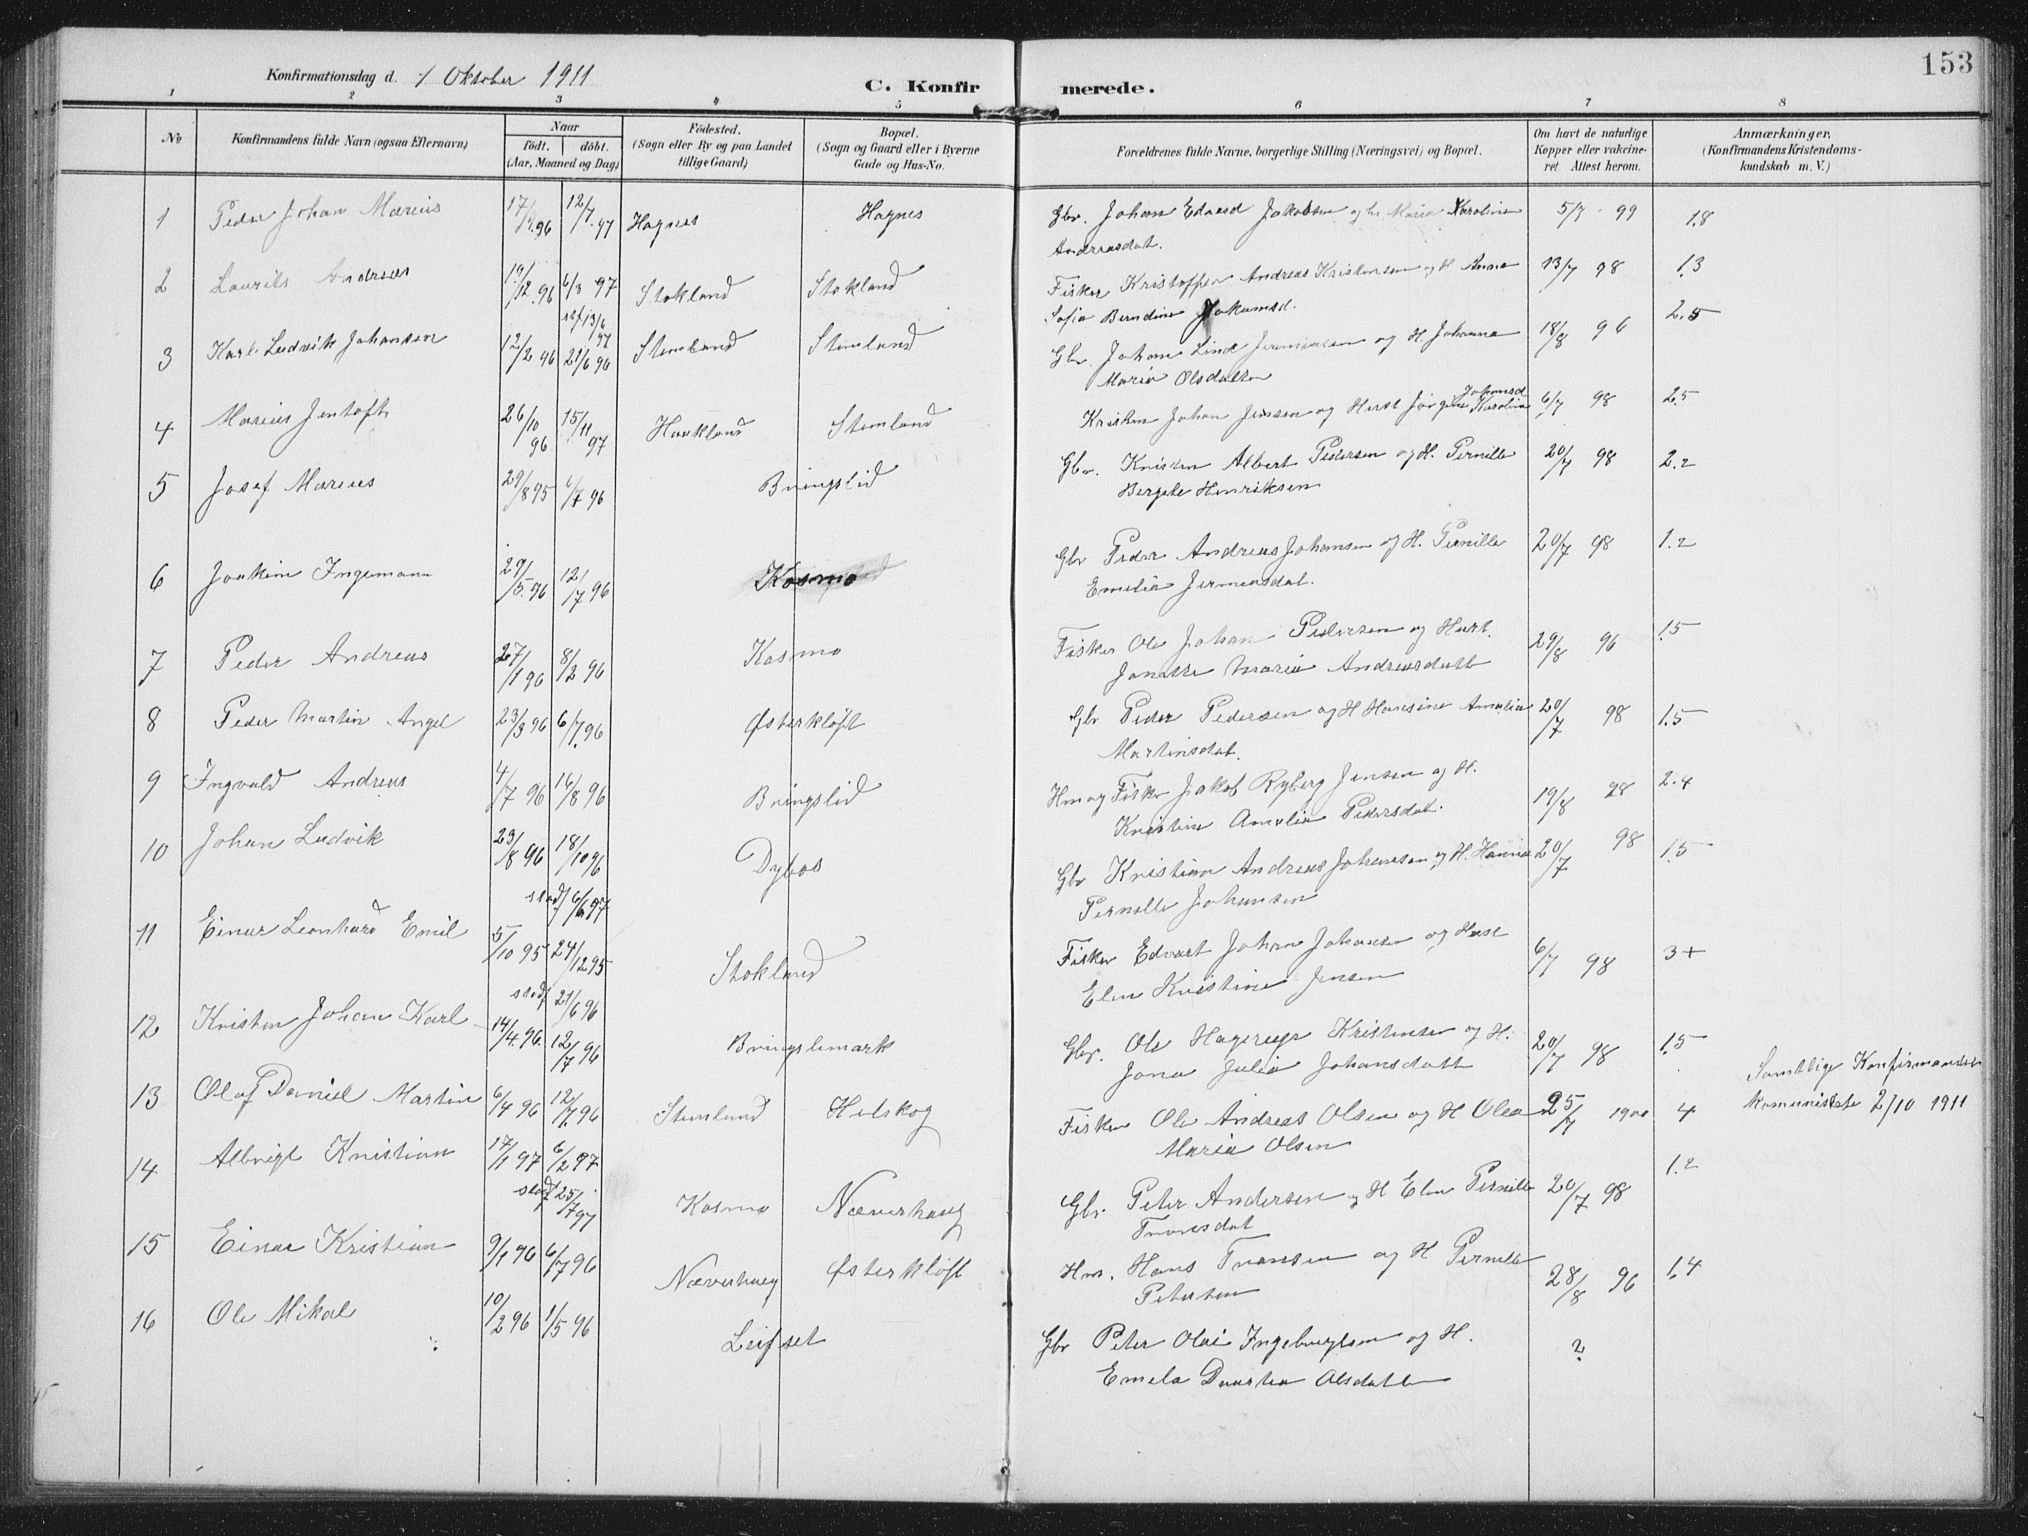 153
Konfirmationsdag d. 1 Oktober 1911
C. Konfirmerede.
1 2 3 4 5 6 7 8
No
Konfirmandens fulde Navn (ogsaa Efternavn)
Naar
födt. döbt.
(Aar, Maaned og Dag)
Födested.
(Sogn eller By og paa Landet
tillige Gaard)
Bopæl.
(Sogn og Gaard eller i Byerne
Gade og Hus-No.
Forældrenes fulde Navne, borgerlige Stilling (Næringsvei) og Bopæl.
Om havt de naturlige
Kopper eller vakcine-
ret. Attest herom.
Anmærkninger.
(Konfirmandens Kristendoms-
kundskab m. V.)
1 Peder Johan Marius 12/7.97 Hagnes Hagnes Gbr. Johan Edvard Jakobsen og Maria Karoline 5/7 - 99 1.8
Andreasdat.
2 Laurits Andreas 19/12.96 6/3 97 Stokland Stokland Fisker Kristoffer Andreas Kristensen og H. Anna 13/7 98 1.3
Sofie Berndine Jakamsd.
13/6 97
3 Karl Ludvik Johansen 12/2 96 21/6 96 Stemland Stemland Gbr. Johan Lind Jeremiasen og H. Johanna 18/8 96 2.5
Maria Olsdatter
4 Marius Jentoft 26/10 96 15/11 97 Haukland Stemland Kristen Johan Jensen og Hust Jörgine Karolina Johansd 6/7 98 2.5
5 Josef Marius 29/8 95 6/7 96 Bringslid Gbr. Kristen Albert Pedersen og H. Pernille 20/7 98 2.2
Bergete Henriksen
6 Joakim Ingemann 29/5.96 12/7 96 Kosmo Gbr Peder Andreas Johansen og H. Pernille 20/7 98 1.2
Emelia Jermiasdat.
7 Peder Andreas 27/1 96 8/2 96 Kosmo Fisker Ole Johan Pedersen og Hust. 29/8 96 1.5
Jonette Maria Andreasdatt
8 Peder Martin Angel 23/3 96 6/7.96 Østerkløft Gbr Peder Pedersen og H Hansine Amalia 20/7 98 1.5
Martinsdat.
9 Ingvald Andreas 4/7 96 16/8 96 Bringslid Hm og Fisker Jakob Ryberg Jensen og H. 19/8 98 2.4
Kristine Amalia Pedersdat.
10 Johan Ludvik 23/8 96 18/10 96 Dybos Gbr Kristian Andreas Johansen og H. Hanna 20/7 98 1.5
Pernille Johansen
stadf 6/6 97
11 Einar Leonhard Emil 5/10 95 24/12 95 Stokland Fisker Edvart Johan Johansen og Hust 6/7 98 3+
Elen Kristine Jensen
stadf 21/6 96
12 Kristen Johan Karl 14/4.96 12/7 96 Bringslimark Gbr. Ole Hagerup Kristensen og H. 20/7 98 1.5
Jona Julia Johansdatt
Samtlige Konfirmander
komuniserte 2/10 1911
13 Olaf Daniel Martin 6/4 96 12/7.96 Stemland Helskog Fisker Ole Andreas Olsen og H Olea 25/7 1900 4
Maria Olsen
14 Albrigt Kristian 17/1 97 6/2 97 Kosmo Næverhaug Gbr. Peter Andersen og H Elen Pernille 20/7 98 1.2
Tronesdat
stadf 25/7 97
15 Einar Kristian 9/1 96 6/7 96 Næverhaug Østerkløft Hm. Hans Tronsen og H Pernille 28/8 96 1.4
Petersen
16 Ole Mikal 10/2 96 1/5 96 Leifset Gbr Peter Olai Ingebrigtsen og H. ?
Emela Daartea Olsdatt